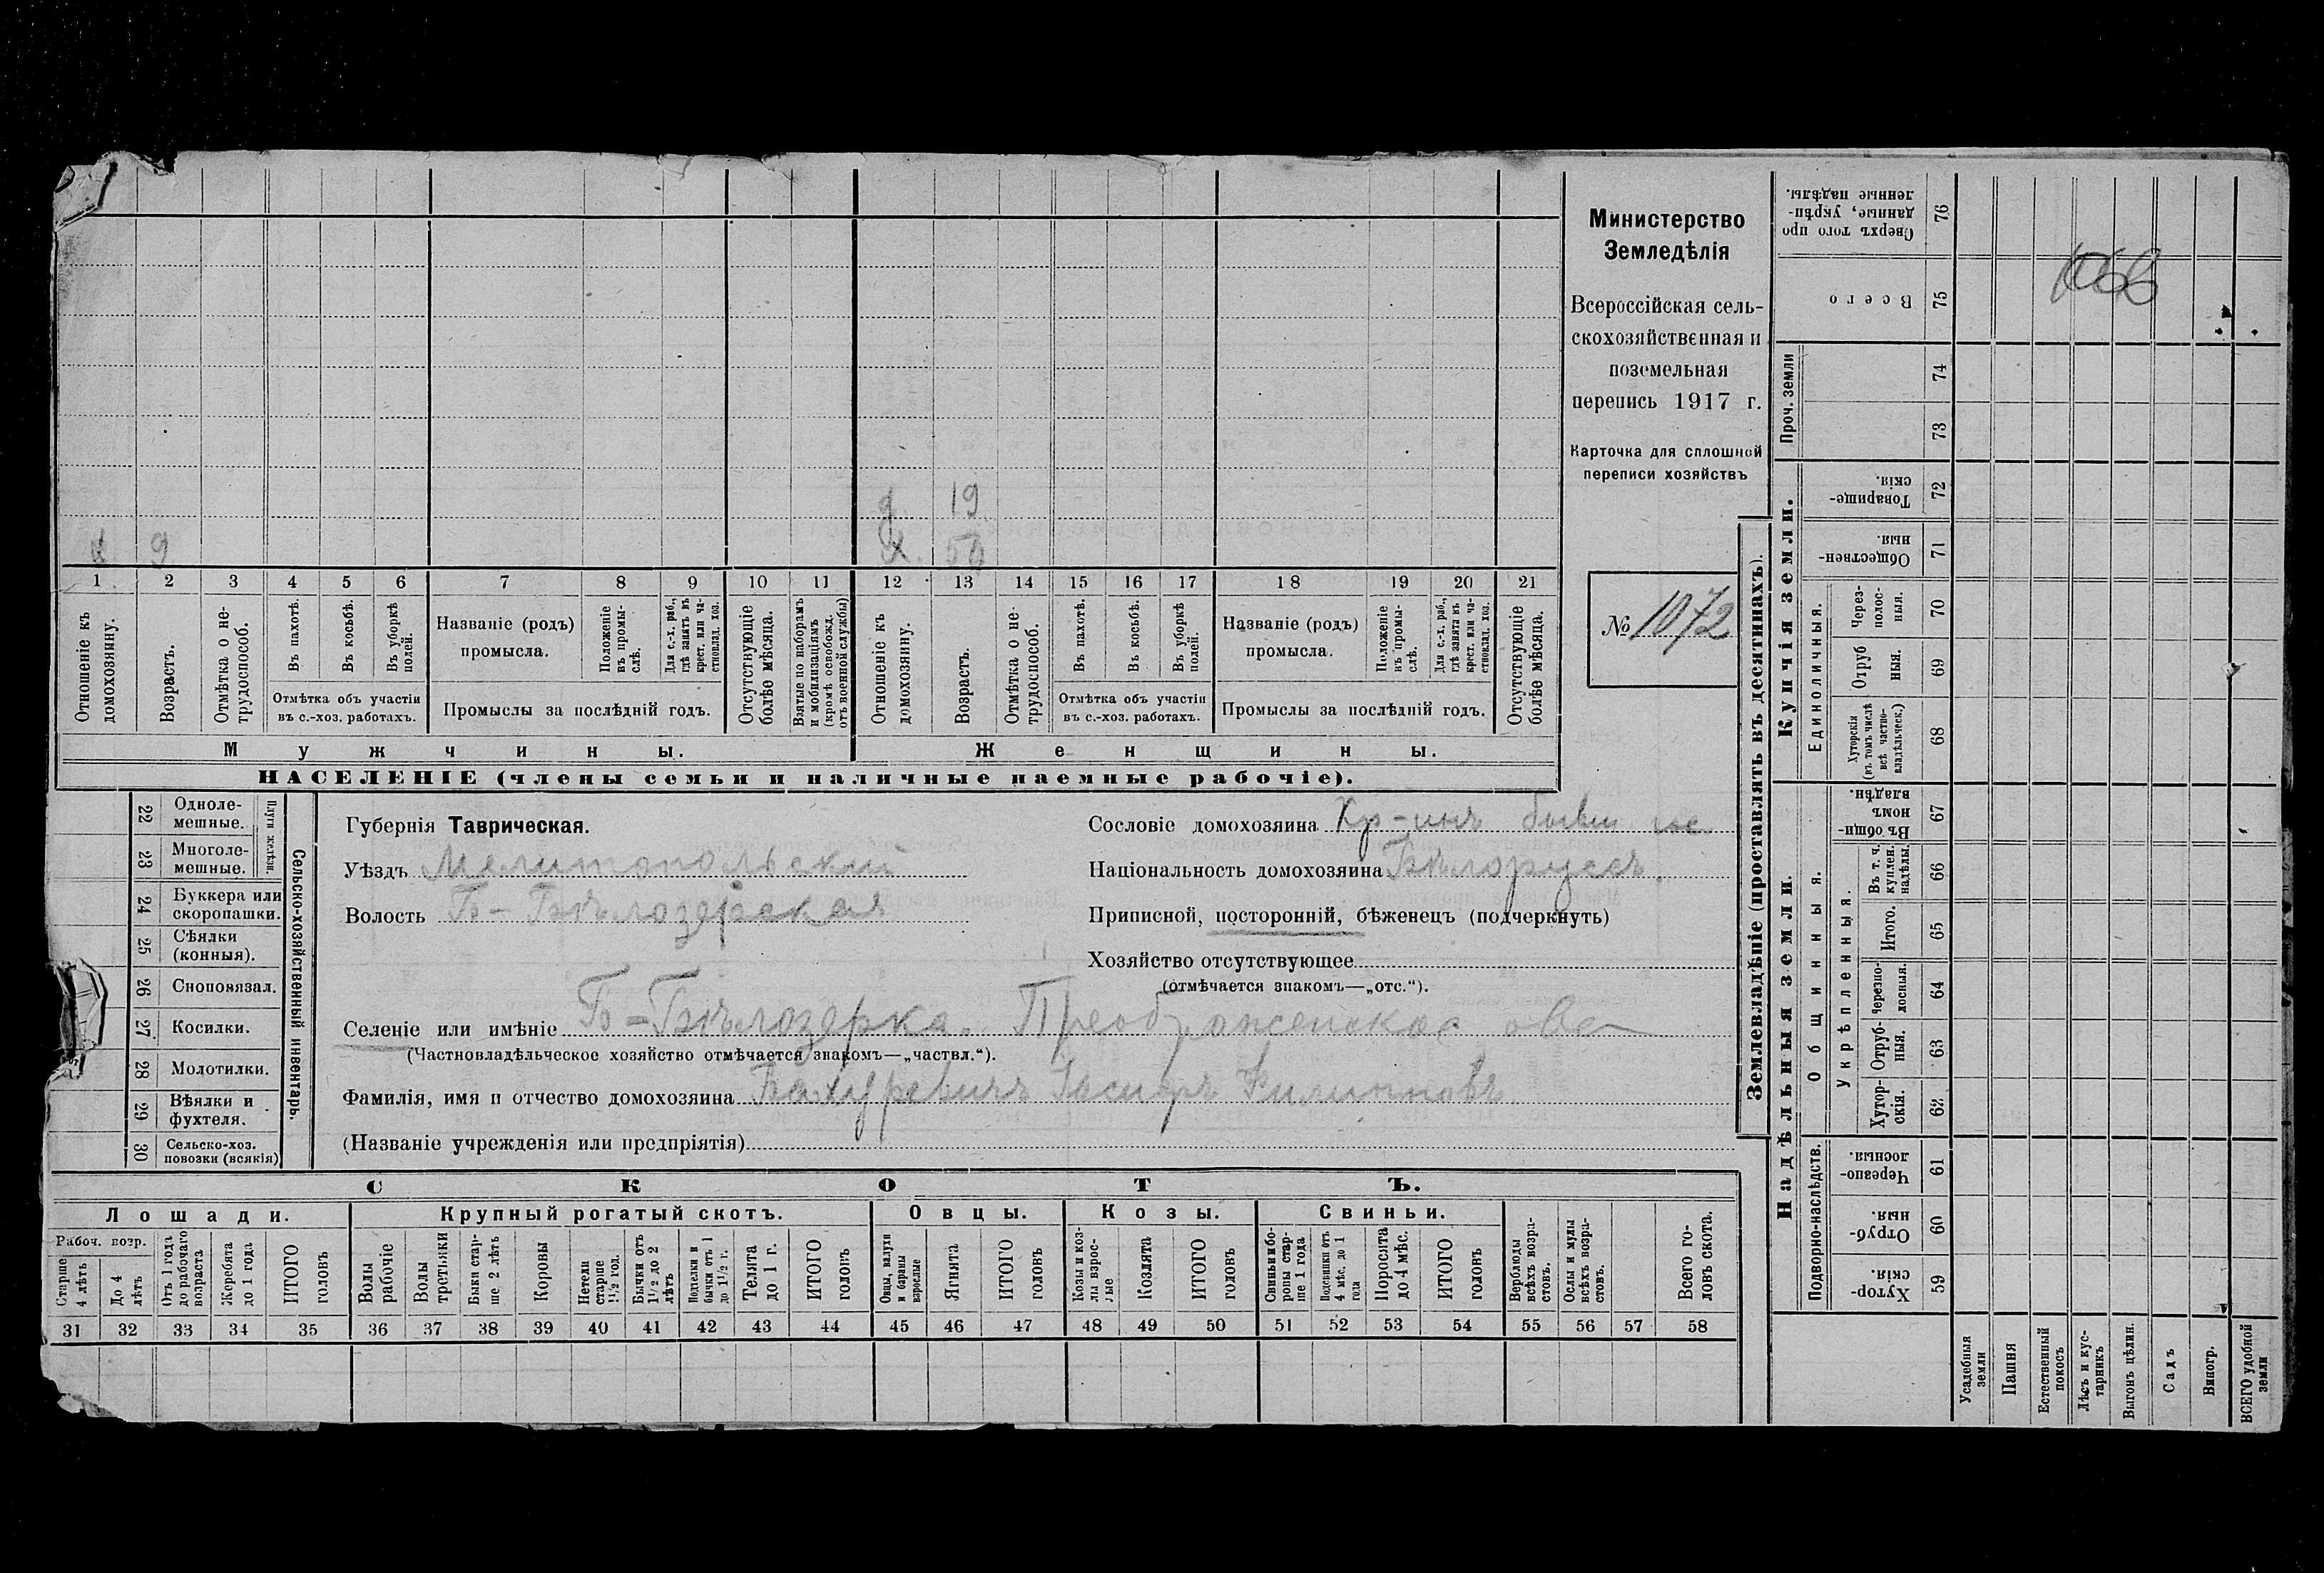 Министерство
Земледѣлія
Всероссійская сель-
скохозяйственная и
поземельная
перепись 1917 г.
Карточка для сплошной
переписи хозяйствъ
№ 1072
19
9 50
1 2 3 4 5 6 7 8 9 10 11 12 13 14 15 16 17 18 19 20 21
Отношеніе къ домохозяину.
Возрастъ.
Отмѣтка о не-трудоспособ.
Въ пахотѣ.
Въ косьбѣ.
Въ уборкѣ полей.
Отмѣтка объ участіи въ с.-хоз. работахъ.
Названіе (родъ) промысла.
Положеніе въ промы-слѣ.
Для с.-х. раб., гдѣ занятъ въ крест. или ча-стновлад. хоз.
Промыслы за послѣдній годъ.
Отсутствующіе болѣе мѣсяца.
Взятые по наборамъ и мобилизаціямъ (кромѣ освобожд. отъ военной службы)
Отношеніе къ домохозяину.
Возрастъ.
Отмѣтка о не-трудоспособ.
Въ пахотѣ.
Въ косьбѣ.
Въ уборкѣ полей.
Отмѣтка объ участіи въ с.-хоз. работахъ.
Названіе (родъ) промысла.
Положеніе въ промы-слѣ.
Для с.-х. раб., гдѣ занята въ крест. или ча-стновлад. хоз.
Промыслы за послѣдній годъ.
Отсутствующіе болѣе мѣсяца.
Мужчины. Женщины.
НАСЕЛЕНІЕ (члены семьи и наличные наемные рабочіе).
Сельско-хозяйственный инвентарь.
Плуги желѣзн.
22 Одноле-мешные.
23 Многоле-мешные.
24 Буккера или скоропашки.
25 Сѣялки (конныя).
26 Сноповязал.
27 Косилки.
28 Молотилки.
29 Вѣялки и фухтеля.
30 Сельско-хоз. повозки (всякія)
Губернія Таврическая.
Уѣздъ Мелитопольский
Волость Б-Бѣлозерская
Сословіе домохозяина Кр-инъ бывш
Національность домохозяина Бѣлоруссъ
Приписной, посторонній, бѣженецъ (подчеркнуть)
Хозяйство отсутствующее
(отмѣчается знакомъ—„отс.“).
Селеніе или имѣніе Б-Бѣлозерка. Преображенское
(Частновладѣльческое хозяйство отмѣчается знакомъ—„частвл.“).
Фамилія, имя и отчество домохозяина Филипповъ
(Названіе учрежденія или предпріятія)
СКОТЪ.
Лошади. Крупный рогатый скотъ. Овцы. Козы. Свиньи.
Рабоч. возр.
Старше 4 лѣтъ
До 4 лѣтъ
Отъ 1 года до рабочаго возраста
Жеребята до 1 года
ИТОГО головъ
Волы рабочіе
Волы третьяки
Быки стар-ше 2 лѣтъ
Коровы
Нетели старше 1½ год.
Бычки отъ 1½ до 2 лѣтъ
Подтелки и бычки отъ 1 до 1½ г.
Телята до 1 г.
ИТОГО головъ
Овцы, валухи и бараны взрослые
Ягнята
ИТОГО головъ
Козы и коз-лы взрос-лые
Козлята
ИТОГО головъ
Свиньи и бо-ровы стар-ше 1 года
Подсвинки отъ 4 мѣс. до 1 года
Поросята до 4 мѣс.
ИТОГО головъ
Верблюды всѣхъ возра-стовъ.
Ослы и мулы всѣхъ возра-стовъ.
Всего го-ловъ скота.
31 32 33 34 35 36 37 38 39 40 41 42 43 44 45 46 47 48 49 50 51 52 53 54 55 56 57 58
Землевладѣніе (проставлять въ десятинахъ).
Надѣльныя земли. Купчія земли. Проч. земли
Подворно-наслѣдств.
Общинныя.
Укрѣпленныя.
Единоличныя.
Хутор-скія. 59
Отруб-ныя. 60
Черезпо-лосныя. 61
Хутор-скія. 62
Отруб-ныя. 63
Черезпо-лосныя. 64
Итого. 65
Въ т. ч. куплен. надѣлы. 66
Въ общи-номъ владѣн. 67
Хуторскія (въ томъ числѣ всѣ частно-владѣльческ.) 68
Отруб ныя. 69
Через-полос-ныя. 70
Обществен-ныя. 71
Товарище-скія. 72
73
74
Всего 75
Сверхъ того про данные, укрѣп-ленные надѣлы. 76
Усадебныя земли
Пашня
Естественный покосъ
Лѣсъ и кус-тарникъ
Выгонъ цѣлин.
Садъ
Виногр.
ВСЕГО удобной земли